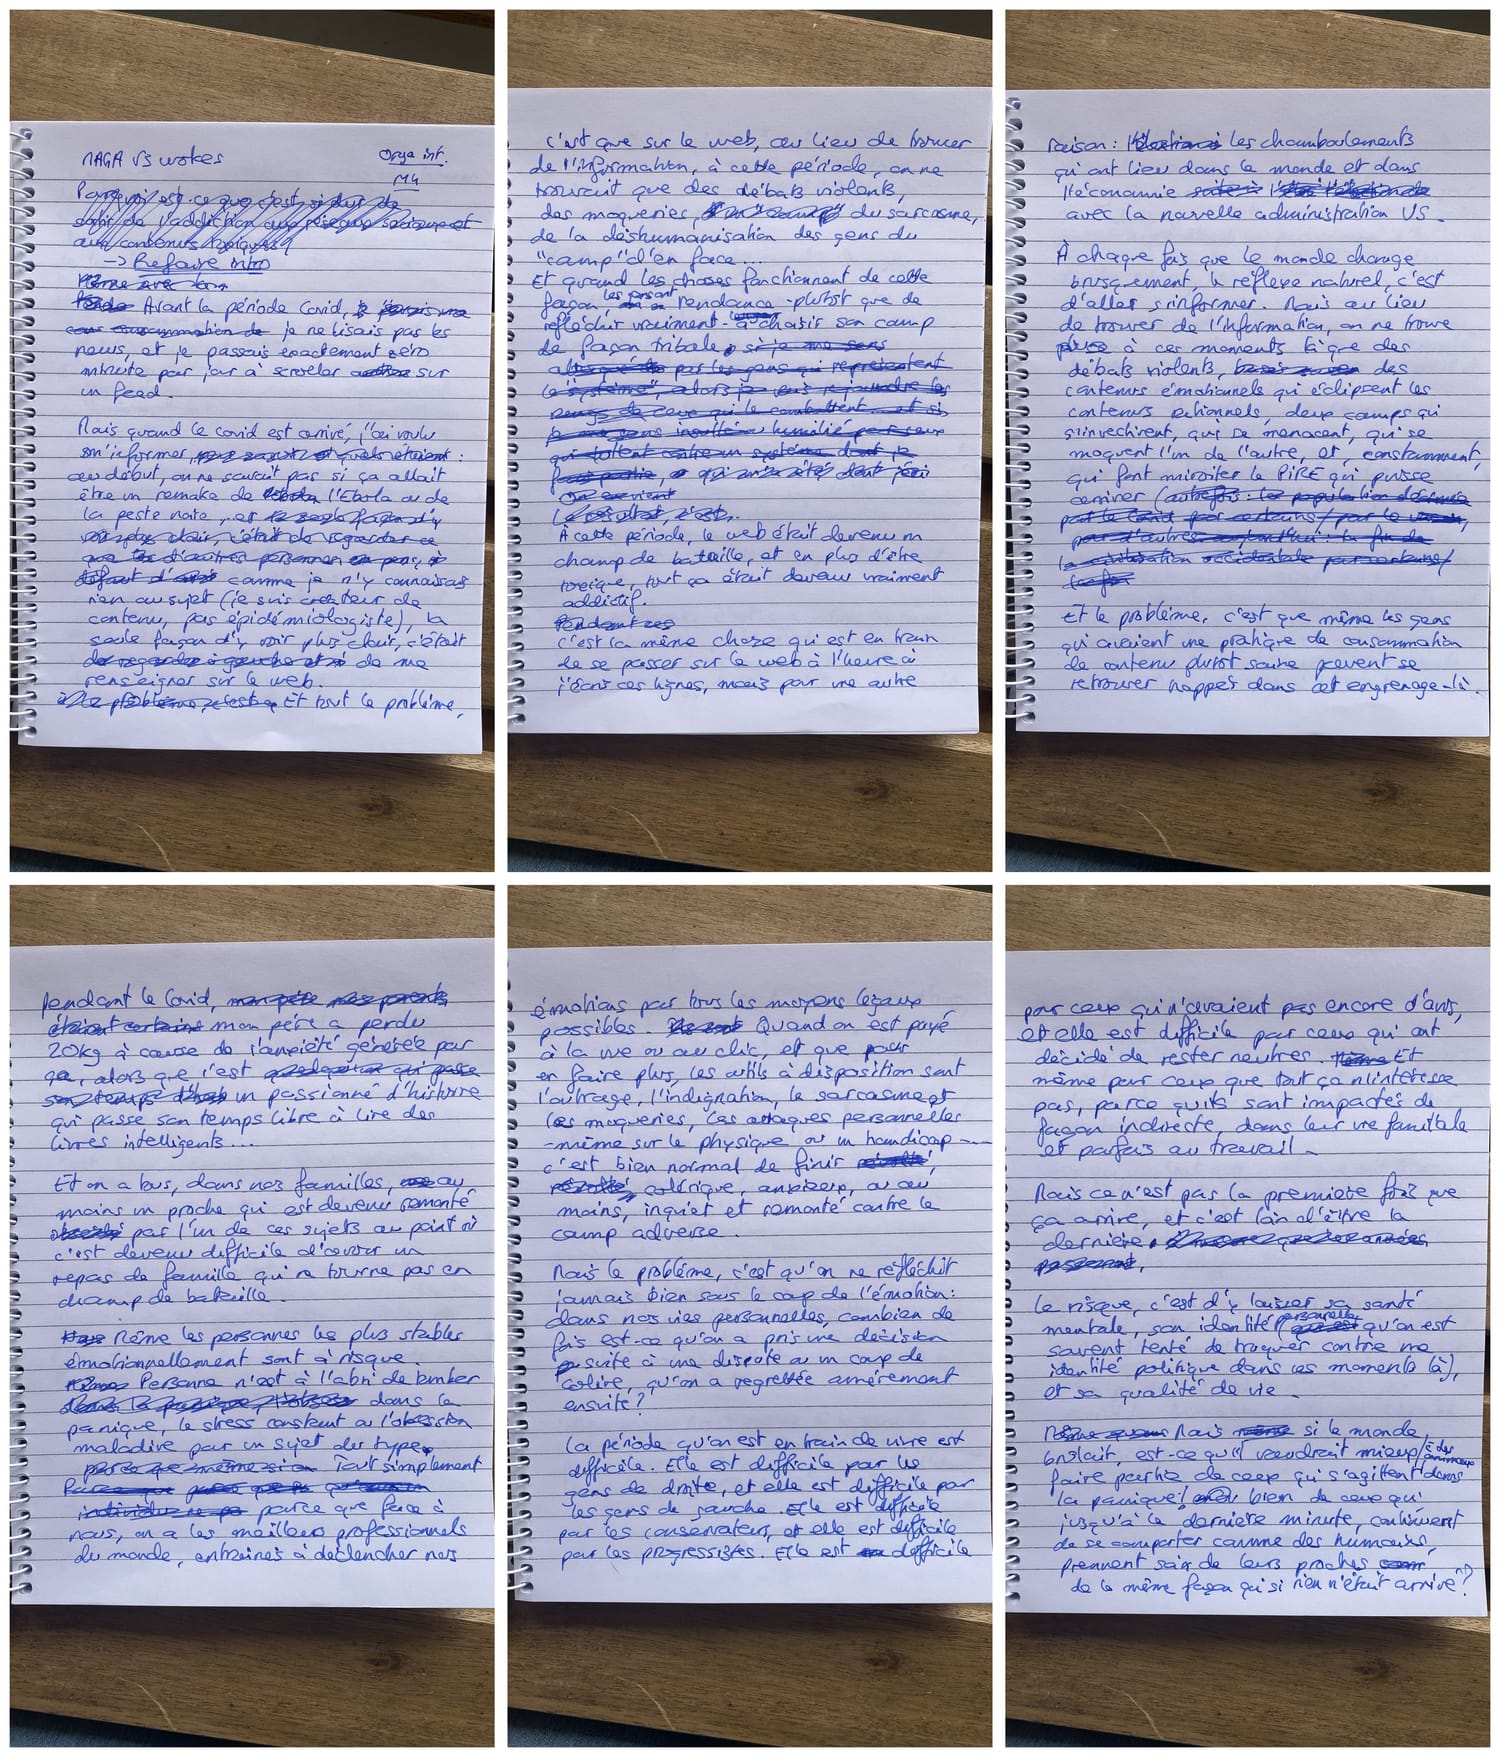 MAGA vs wokes
Orga int.
M4
Pourquoi est-ce que c'est si dur de
sortir de l'addiction aux réseaux sociaux et
aux contenus toxiques ?
-> Refaire intro
Même avec
Avant la période Covid, je
je ne lisais pas les
news, et je passais exactement zéro
minute par jour à scroller sur
un feed.
Mais quand le covid est arrivé, j'ai voulu
m'informer :
au début, on ne savait pas si ça allait
être un remake de l'Ebola ou de
la peste noire, et la seule façon d'y
voir plus clair, c'était de regarder ce
que d'autres personnes en pens
défaut d' comme je n'y connaissais
rien au sujet (je suis créateur de
contenu, pas épidémiologiste), la
seule façon d'y voir plus clair, c'était
de regarder à gauche et à de me
renseigner sur le web.
Le problème, c'est que Et tout le problème,
c'est que sur le web, au lieu de trouver
de l'information, à cette période, on ne
trouvait que des débats violents,
des moqueries, du sarcasme,
de la déshumanisation des gens du
"camp" d'en face...
Et quand les choses fonctionnent de cette
façon, les gens ont tendance - plutôt que de
réfléchir vraiment - à choisir son camp
de façon tribale, si je me sens
attaqué par les gens qui représentent
le "système", alors je vais rejoindre les
rangs de ceux qui le combattent... et si
je me sens insulté ou humilié par ceux
qui luttent contre un système dont je
fais partie, ou qui m'a été dont j'ai
On en vient
Le résultat, c'est
À cette période, le web était devenu un
champ de bataille, et en plus d'être
toxique, tout ça était devenu vraiment
addictif.
Pendant ces
C'est la même chose qui est en train
de se passer sur le web à l'heure où
j'écris ces lignes, mais pour une autre
raison : les chamboulements
qui ont lieu dans le monde et dans
l'économie suite à
avec la nouvelle administration US.
À chaque fois que le monde change
brusquement, le réflexe naturel, c'est
d'aller s'informer. Mais au lieu
de trouver de l'information, on ne trouve
plus à ces moments là que des
débats violents, des
contenus émotionnels qui éclipsent les
contenus rationnels, deux camps qui
s'invectivent, qui se menacent, qui se
moquent l'un de l'autre, et, constamment,
qui font miroiter le PIRE qui puisse
arriver (autrefois : la population décimée
par le Covid pour certains / par le vaccin,
pour d'autres aujourd'hui : la fin de
la civilisation occidentale pour certains /
la fin
Et le problème, c'est que même les gens
qui avaient une pratique de consommation
de contenu plutôt saine peuvent se
retrouver happés dans cet engrenage-là.
Pendant le Covid, mon père mes parents
étaient certains mon père a perdu
20kg à cause de l'anxiété générée par
ça, alors que c'est quelqu'un qui passe
son temps libre un passionné d'histoire
qui passe son temps libre à lire des
livres intelligents...
Et on a tous, dans nos familles, au
moins un proche qui est devenu remonté
par l'un de ces sujets au point où
c'est devenu difficile d'avoir un
repas de famille qui ne tourne pas en
champ de bataille.
Même les personnes les plus stables
émotionnellement sont à risque.
Personne n'est à l'abri de tomber
dans la panique, l'obses dans la
panique, le stress constant ou l'obsession
maladive pour un sujet du type,
parce que même si on Tout simplement
Parce que parce que
individu ne parce que face à
nous, on a les meilleurs professionnels
du monde, entraînés à déclencher nos
émotions par tous les moyens légaux
possibles. Quand on est payé
à la vue ou au clic, et que pour
en faire plus, les outils à disposition sont
l'outrage, l'indignation, le sarcasme et
les moqueries, les attaques personnelles
- même sur le physique ou un handicap -
c'est bien normal de finir révolté,
révolté, colérique, anxieux, ou au
moins, inquiet et remonté contre le
camp adverse.
Mais le problème, c'est qu'on ne réfléchit
jamais bien sous le coup de l'émotion :
dans nos vies personnelles, combien de
fois est-ce qu'on a pris une décision
suite à une dispute ou un coup de
colère, qu'on a regrettée amèrement
ensuite ?
La période qu'on est en train de vivre est
difficile. Elle est difficile pour les
gens de droite, et elle est difficile pour
les gens de gauche. Elle est difficile
pour les conservateurs, et elle est difficile
pour les progressistes. Elle est difficile
pour ceux qui n'avaient pas encore d'avis,
et elle est difficile pour ceux qui ont
décidé de rester neutres. Et
même pour ceux que tout ça n'intéresse
pas, parce qu'ils sont impactés de
façon indirecte, dans leur vie familiale
et parfois au travail.
Mais ce n'est pas la première fois que
ça arrive, et c'est loin d'être la
dernière.
Le risque, c'est d'y laisser sa santé
mentale, son identité personnelle (qu'on est
souvent tenté de troquer contre une
identité politique dans ces moments là),
et sa qualité de vie.
Mais si le monde
brûlait, est-ce qu'il vaudrait mieux
faire partie de ceux qui s'agitent dans
la panique, ou bien de ceux qui
jusqu'à la dernière minute, continuent
de se comporter comme des humains,
prennent soin de leurs proches
de la même façon qui si rien n'était arrivé ?